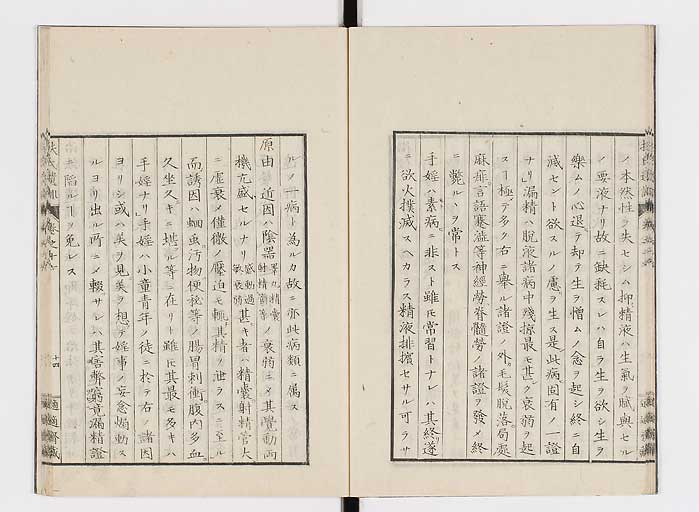 ノ本然性ヲ失セシハ抑精液ハ生氣ヲ賦與セル
ノ要液ナリ故ニ缺耗スレハ自ラ生ヲ欲シ生ヲ
樂ムノ心退テ却テ生ヲ憎ムノ念ヲ起シ終ニ自
滅セント欲スルノ慮ヲ生ス是此病固有ノ一證
ナリ漏精ハ脱液諸病中殘掠最モ甚ク衰病ヲ起
スヿ極テ多ク右ニ擧ル諸證ノ外毛髪脱落局處
麻痺言語蹇澁等神經勞脊髓勞ノ諸證ヲ發メ終
ニ斃ルヽヲ常トス
手婬ハ素病ニ非スト雖モ常習トナレハ其終遂
ニ欲火撲滅スヘカラス精液排擯セサル可ラサ
ルノ一病ト為ルカ故ニ亦此病類ニ属ス
原由 近因ハ陰器睪丸精囊射精管等ノ衰弱ニメ其覺動兩
機亢盛セルナリ感動過敏衰弱甚キ者ハ精囊射精管大
ニ虚衰メ僅微ノ壓迫モ輒其精ヲ泄ラスニ至ル
而誘因ハ蛔虫汚物便秘等ノ腸胃刺衝腹内多血
久坐久キニ堪ル等ニ在リト雖モ其最モ多キハ
手婬ナリ手婬ハ小童青年ノ徒ニ於テ右ノ諸因
ヨリシ或ハ美ヲ見美ヲ想テ婬事ノ妄念煽動ス
ルヨリ出ル所ニメ輟サレハ其痼弊竟漏精證
ニ陷ルヿヲ免レス
十四
適適齋藏